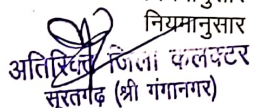 नियमानुसार
अतिरिक्त जिला कलक्टर
सूरतगढ़ (श्री गंगानगर)